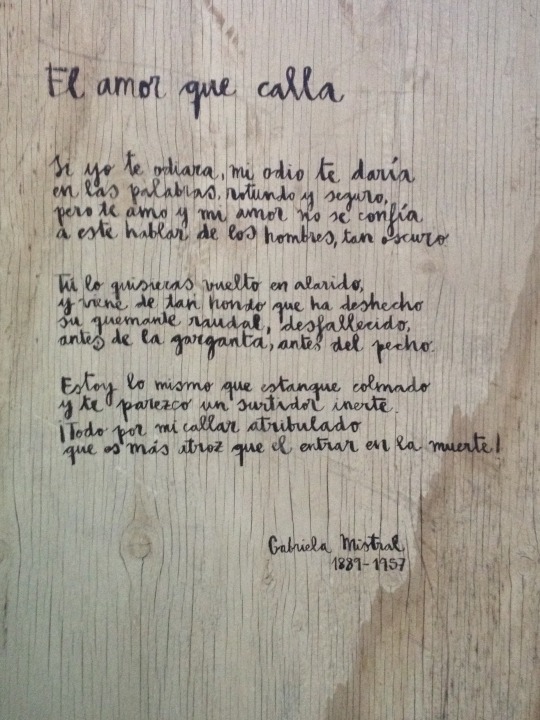 El amor que calla
Si yo te odiara, mi odio te daría
en las palabras, rotundo y seguro,
pero te amo y mi amor no se confía
a este hablar de los hombres, tan oscuro
Tú lo quisieras vuelto en alarido,
y viene de tan hondo que ha deshecho
su quemante raudal, desfallecido,
antes de la garganta, antes del pecho.
Estoy lo mismo que estanque colmado
y te parezco un surtidor inerte.
¡Todo por mi callar atribulado
que es más atroz que el entrar en la muerte!
Gabriela Mistral
1889-1957